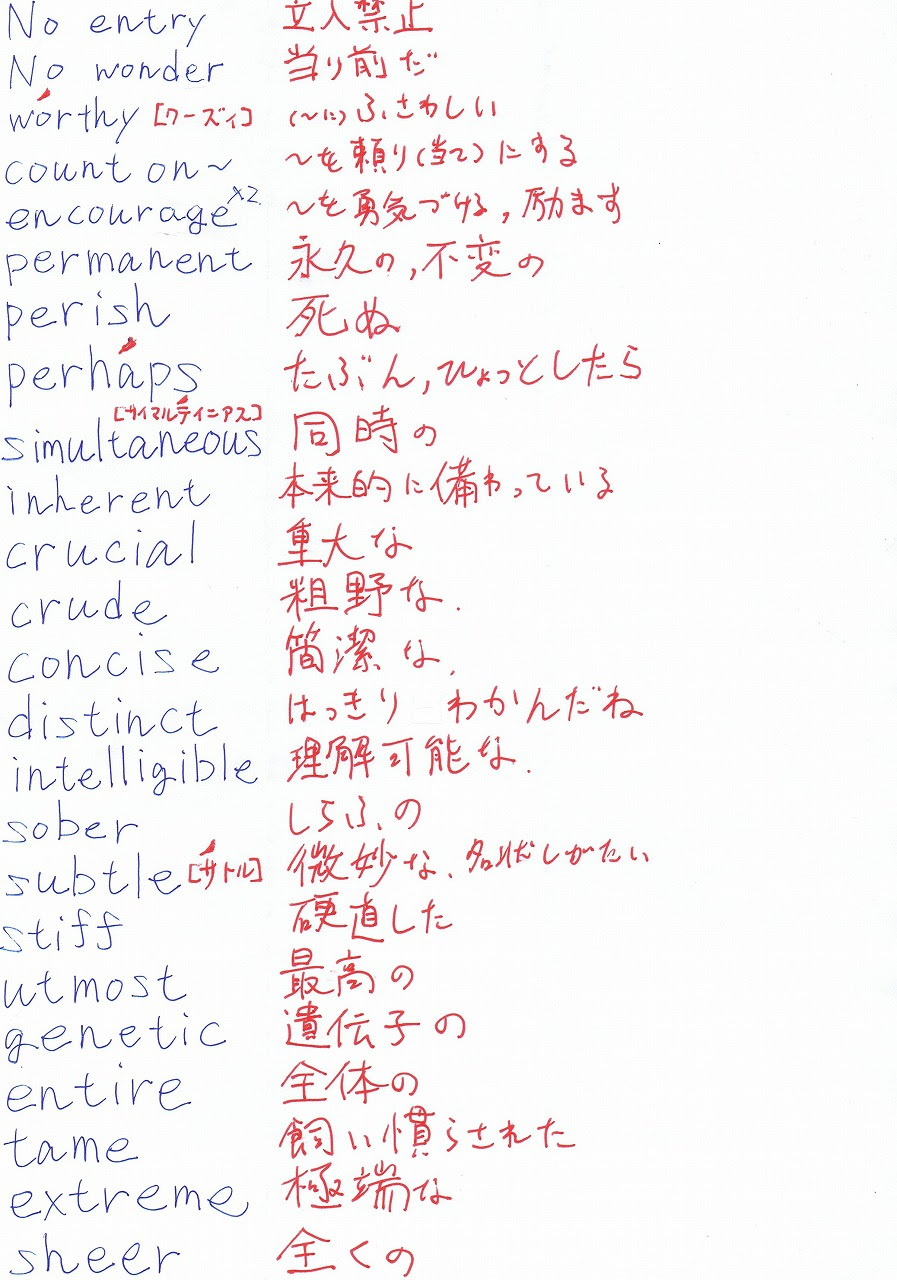 No entry 立入禁止
No wonder 当り前だ
worthy [ワーズィ] (〜に)ふさわしい
count on〜 〜を頼り(当て)にする
encourage ×2 〜を勇気づける, 励ます
permanent 永久の, 不変の
perish 死ぬ
perhaps たぶん, ひょっとしたら
[サイマルテイニアス]
simultaneous 同時の
inherent 本来的に備わっている
crucial 重大な
crude 粗野な.
concise 簡潔な.
distinct はっきり わかんだね
intelligible 理解可能な.
sober しらふの
subtle [サトル] 微妙な. 名状しがたい
stiff 硬直した
utmost 最高の
genetic 遺伝子の
entire 全体の
tame 飼い慣らされた
extreme 極端な
sheer 全くの